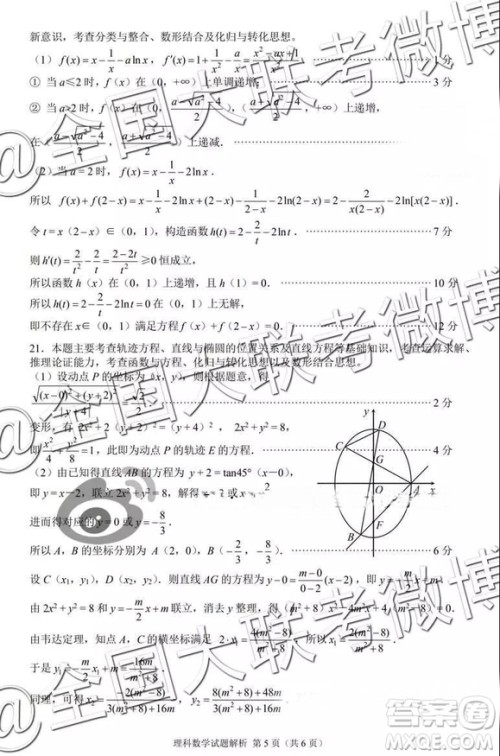 新意识，考查分类与整合、数形结合及化归与转化思想。
（1）f(x)=x-1/x-alnx，f′(x)=1+1/x²-a/x=(x²-ax+1)/x²．……3分
① 当a≤2时，f（x）在（0，+∞）上单调递增，
② 当a>2时，f（x）在（0，(a-√(a²-4))/2），（(a+√(a²-4))/2，+∞）上递增，
在（(a-√(a²-4))/2，(a+√(a²-4))/2）上递减．……6分
（2）当a=2时，f(x)=x-1/x-2lnx．
所以 f(x)+f(2-x)=x-1/x-2lnx+(2-x)-1/(2-x)-2ln(2-x)=2-2/(x(2-x))-2ln[x(2-x)]．
令t=x（2-x）∈（0，1），构造函数h(t)=2-2/t-2lnt．……7分
则h′(t)=2/t²-2/t=(2-2t)/t²≥0恒成立，
所以函数h（x）在（0，1）上递增，且h（1）=0．……10分
所以h(t)=2-2/t-2lnt=0在（0，1）上无解，
即不存在x∈（0，1）满足方程f(x)+f(2-x)=0．……12分
21．本题主要考查轨迹方程、直线与椭圆的位置关系及直线方程等基础知识，考查运算求解、
推理论证能力，考查函数与方程、化归与转化思想以及数形结合思想。
（1）设动点P的坐标为（x，y），则根据题意，得
√((x-0)²+(y+2)²)/|y+4|=√2/2．……2分
变形，有2x²+2（y+2）²=（y+4）²，2x²+y²=8，
即x²/4+y²/8=1，此即为动点P的轨迹E的方程．……5分
（2）由已知得直线AB的方程为y+2=tan45°（x-0），
即y=x-2，联立2x²+y²=8，解得x=2或x=
进而得对应的y=0或y=-8/3．
所以A，B的坐标分别为A（2，0），B（-2/3，-8/3）．……6分
设C（x₁，y₁），D（x₂，y₂）．则直线AG的方程为y-0=(m-0)/(0-2)(x-2)，即y=-m/2x+m．
由2x²+y²=8和y=-m/2x+m联立，消去y并整理，得（m²+8）x²-4m²x+4（m²-8）=0．
由韦达定理，知点A、C横坐标满足2·x₁=4(m²-8)/(m²+8)，所以x₁=2(m²-8)/(m²+8)．
于是y₁=-m/2x₁+m=16m/(m²+8)．
同理，可得x₂=-2(m²-8)/(3(m²+8)+16m)，y₂=-(8(m²+8)+48m)/(3(m²+8)+16m)．
C
D
G
O
A
x
B
F
理科数学试题解析 第5页（共6页）
@全国大联考微博
答案圈